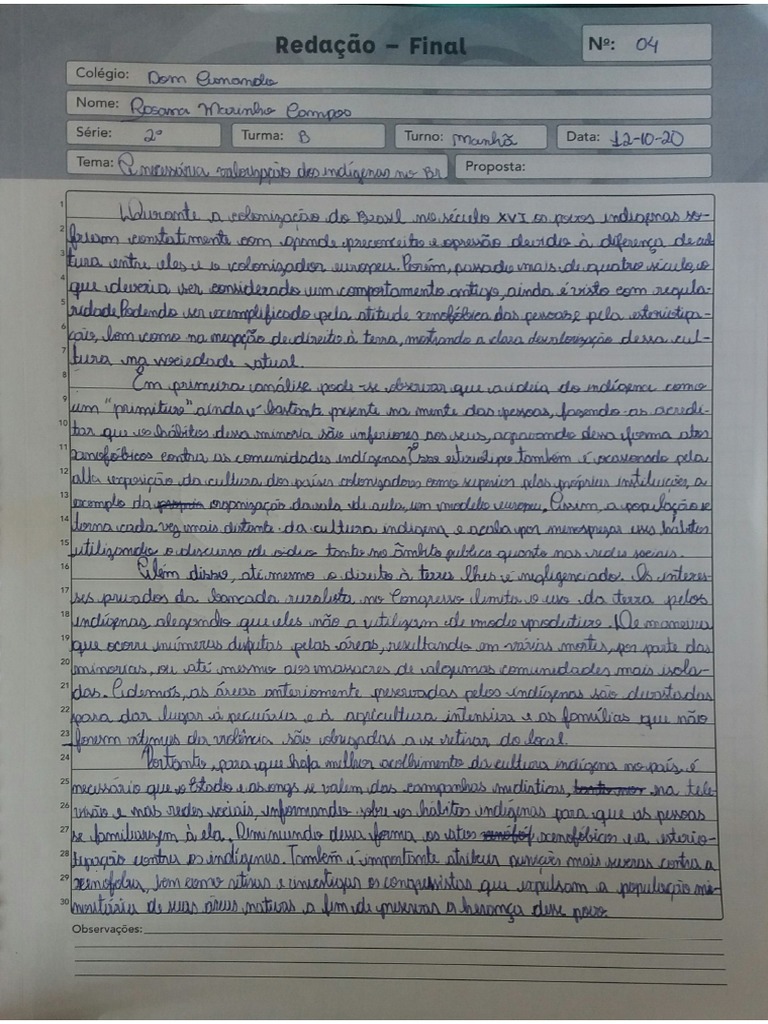 Redação – Final
Nº: 04
Colégio: Dom
Nome: Rosana Marinho Campos
Série: 2º Turma: B Turno: Manhã Data: 12-10-20
Tema: A necessária valorização dos indígenas no Br Proposta:
1 Durante a colonização do Brasil no século XVI os povos indiagenas so-
2 friam constatimente com grande preconceito e opresão devidio à diferença de cul
3 tura entre eles e o colonizador europeu. Porém, passado mais de quatro século, o
4 que deveria ser considerado um comportamento antigo, ainda é visto com regula-
5 ridade. Podendo ser exemplificado pela atitude xenofóbica das pessoas e pela esteriotipa-
6 ção, bem como na negação de direito à terra, mostrando a clara desvalorização dessa cul-
7 tura na sociedade atual.
8 Em primeira análise pode-se observar que a ideia do indígena como
9 um "primitivo" ainda é bastante presente na mente das pessoas, fazendo-as acredi-
10 tar que os hábitos dessa minoria são inferiores aos seus, dessa forma atos
11 xenofóbicos contra as comunidades indígenas. Esse esteriotipo também é ocasionado pela
12 alta exposição da cultura dos países colonizadores como superior pelas próprias instituições, a
13 exemplo da organização da sala de aula, um modelo europeu. Assim, a população se
14 torna cada vez mais distante da cultura indígena e acaba por menosprezar seus hábitos
15 utilizando o discurso de ódio tanto no âmbito publico quanto nas redes sociais.
16 Além disso, até mesmo o direito à terra lhes é negligenciado. Os interes-
17 ses privados da bancada ruralista, no Congresso limita o uso da terra pelos
18 indígenas alegando que eles não a utilizam de modo produtivo. De maneira
19 que ocorre inúmeras disputas pelas áreas, resultando em várias mortes, por parte das
20 minorias, ou até mesmo aos massacres de algumas comunidades mais isola-
21 das. Ademais, as áreas anteriomente preservadas pelos indígenas são devastadas
22 para dar lugar à pecuária e à agricultura intensiva e as famílias que não
23 forem vítimas da violência são obrigadas a se retirar do local.
24 Portanto, para que haja melhor acolhimento da cultura indígena no país, é
25 necessário que o Estado e as ongs se valem das campanhas midiáticas, na tele-
26 visão e nas redes sociais, informando sobre os hábitos indígenas para que as pessoas
27 se familiarizem à ela. Diminuindo dessa forma os atos xenofóbicos e a esterio-
28 tipação contra os indígenas. Também é importante atribuir punições mais severas contra a
29 xenofobia, bem como retirar e investigar os congressistas que expulsam a população mi-
30 noritária de suas áreas nativas a fim de preservar a herança desse povo.
Observações: